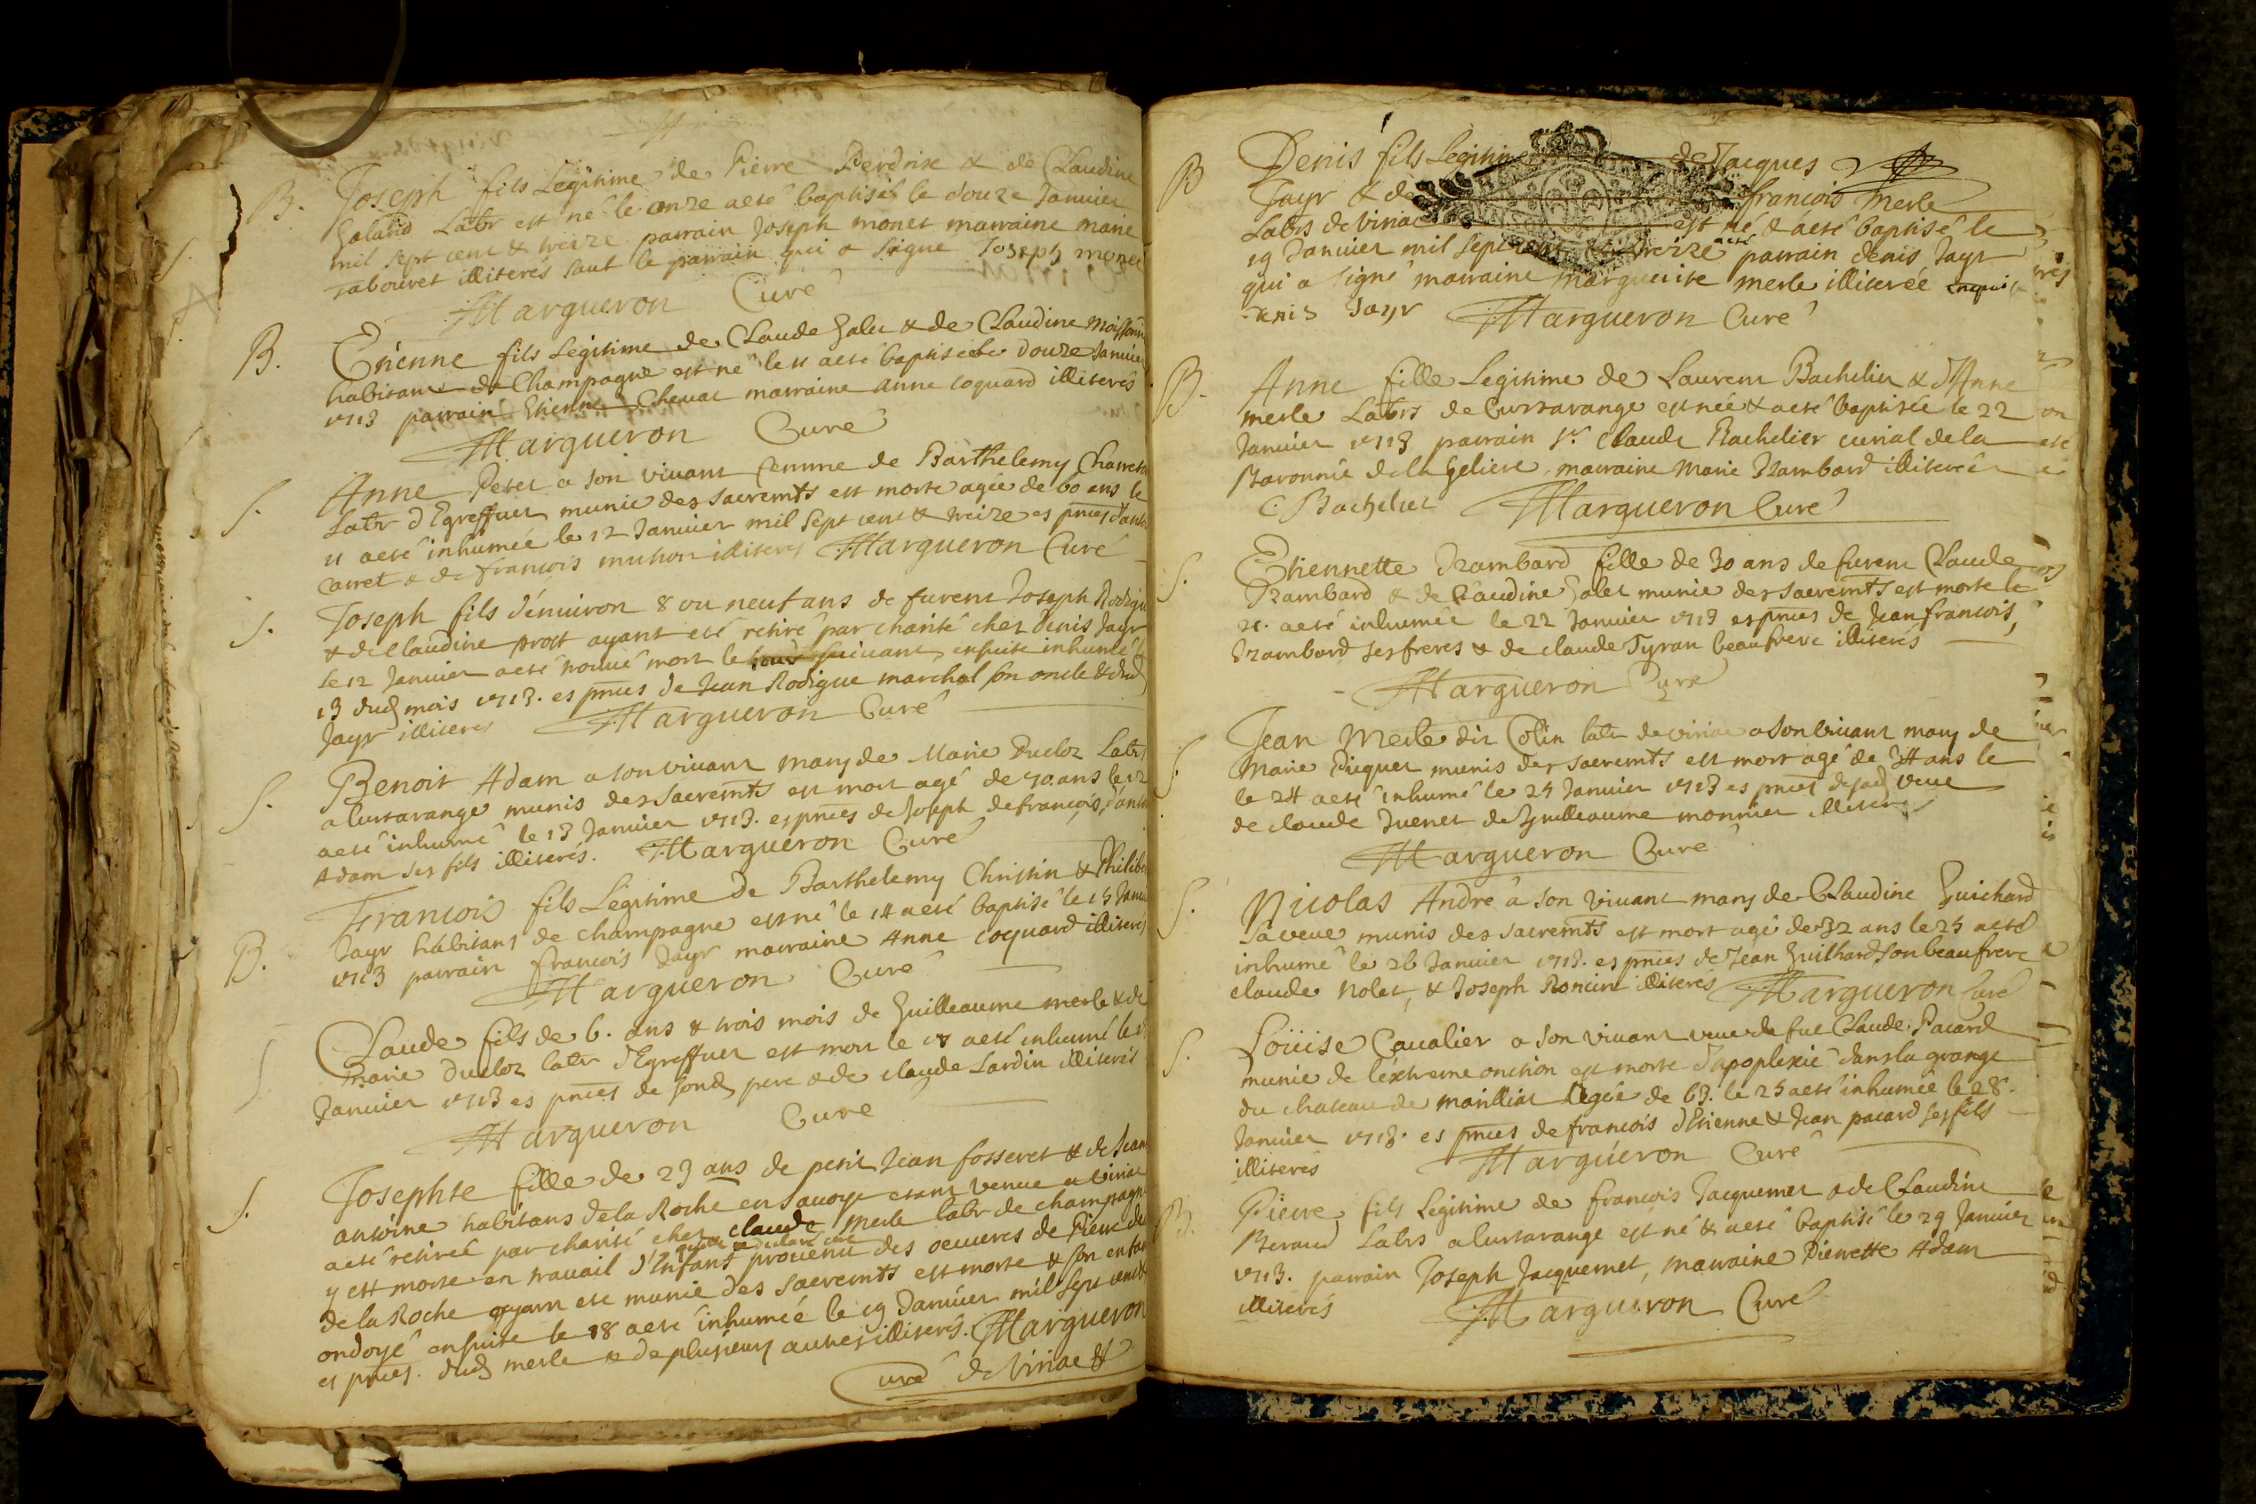 B. Joseph fils Legitime de Pierre Perdrix & de Claudine
Galand Labr est né le onze aeté baptisé le douze Janvier
mil sept cent & treize parrain Joseph monet marraine marie
rabouvet illiterés sauf le parrain qui a signé Joseph monet
Margueron Curé
B. Etienne fils Legitime de Claude Galet & de Claudine
habitans de Champagne est né le 11 aeté baptisé le douze Janvier
1713 parrain Etienne Chevat marraine anne coquard illiterés
Margueron Curé
S. Anne Petet a son vivant femme de Barthelemy
Labr d'Egreffuet munie des sacremts est morte agée de 60 ans le
11 aeté inhumée le 12 Janvier mil sept cent & treize es pnces
& de francois muthon illiterés Margueron Curé
S. Joseph fils d'énviron 8 ou neuf ans de furent Joseph
& de Claudine prost ayant eté retiré par charité chez Denis Jayr
le 12 Janvier aeté trouué mort le suivant ensuite inhumé le
13 dud mois 1713. es pnces de Jean Rodigue marchal son oncle & dud
Jayr illiterés Margueron Curé
S. Benoit Adam a son vivant mary de Marie Ducloz Labr
a lurtavange munis des sacremts est mort agé de 70. ans le 12
aeté inhumé le 13 Janvier 1713. es pnces de Joseph de francois,
Adam ses fils illiterés. Margueron Curé
B. Francois fils Legitime de Barthelemy Christin &
Jayr habitans de champagne est né le 14 aeté baptisé le 15
1713 parrain francois Jayr marraine Anne coquard illiterés
Margueron Curé
S. Claude fils de 6. ans & trois mois de Guilleaume merle & de
Marie Ducloz labr d'Egreffuet est mort le 18 aeté inhumé le
Janvier 1713 es pnces de sond pere & de claude Lardin illiterés
Margueron Curé
S. Josephte fille de 23 ans de petit Jean fosseret & de
antoine habitans de la Roche en Savoye etant venue a viriat
aeté retirée par charité chez claude merle labr de champagne
y est morte en travail d'Enfant provenu des oeuvres de Pierre
de la Roche ayant eté munie des sacremts est morte & son enfant
ondoyé ensuite le 18 aeté inhumée le 19 Janvier mil sept cent &
es pnces. dud merle & de plusieurs autres illiterés. Margueron
Curé de Viriat
B Denis fils Legitime de Jacques
Jayr & de francois Merle
Labrs de viriat est né & aeté baptisé le
19 Janvier mil sept cent & treize parrain denis Jayr
qui a signé marraine marguerite merle illiterée
denis Jayr Margueron Curé
B. Anne fille Legitime de Laurent Bachelier & d'Anne
merle Labrs de Curtavange est née & aeté baptisée le 22
Janvier 1713 parrain Sr. Claude Bachelier curial de la
Baronnie de la Geliere, marraine Marie Brambard illiterée
C Bachelier Margueron Curé
S. Etiennette Brambard fille de 30 ans de furent Claude
Brambard & de Claudine Galet munie des sacremts est morte le
21. aeté inhumée le 22 Janvier 1713 es pnces de Jean francois,
Brambard ses freres & de claude Tyran beaufrere illiterés
Margueron Curé
S. Jean Merle dit Colin labr de viriat a son vivant mary de
Marie Picquet munis des sacremts est mort agé de 74 ans le
le 24 aeté inhumé le 25 Janvier 1713 es pnces de sad veue
de claude Juenet de Guilleaume monnier illiterés
Margueron Curé
S. Nicolas André à son vivant mary de Claudine Guichard
sa veue munis des sacremts est mort agé de 32 ans le 25 aeté
inhumé le 26 Janvier 1713. es pnces de Jean Guilhard son beaufrere
claude Nolet, & Joseph Roncin illiterés Margueron Curé
S. Loüise Cavalier a son vivant veue de fut Claude Pacard
munie de l'extreme onction est morte d'apoplexie dans la grange
du chateau de marilliat agée de 63. le 25 aeté inhumée le 28.
Janvier 1713. es pnces de francois d'Etienne & Jean pacard ses fils
illiterés Margueron Curé
B. Pierre fils Legitime de francois Jacquemet & de Claudine
Beraud Labrs a lurtavange est né & aeté baptisé le 29 Janvier
1713. parrain Joseph Jacquemet, marraine Pierrette Adam
illiterés Margueron Curé